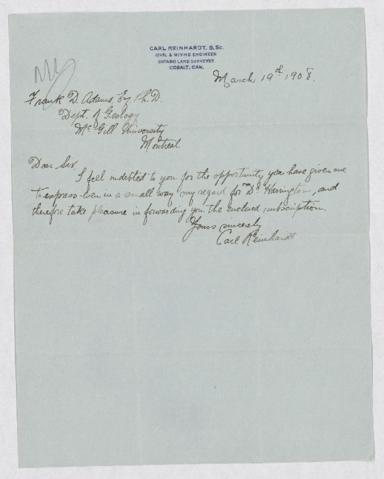 CARL REINHARDT, B.Sc.
CIVIL & MINING ENGINEER
ONTARIO LAND SURVEYOR
COBALT, CAN.
March 19th 1908.
Frank D. Adams Esq Ph.D.
Dept. of Geology
McGill University
Montreal
Dear Sir
I feel indebted to you for the opportunity you have given me
to express even in a small way my regard for Dr Harrington, and
therefore take pleasure in forwarding you the enclosed subscription.
Yours sincerely
Carl Reinhardt